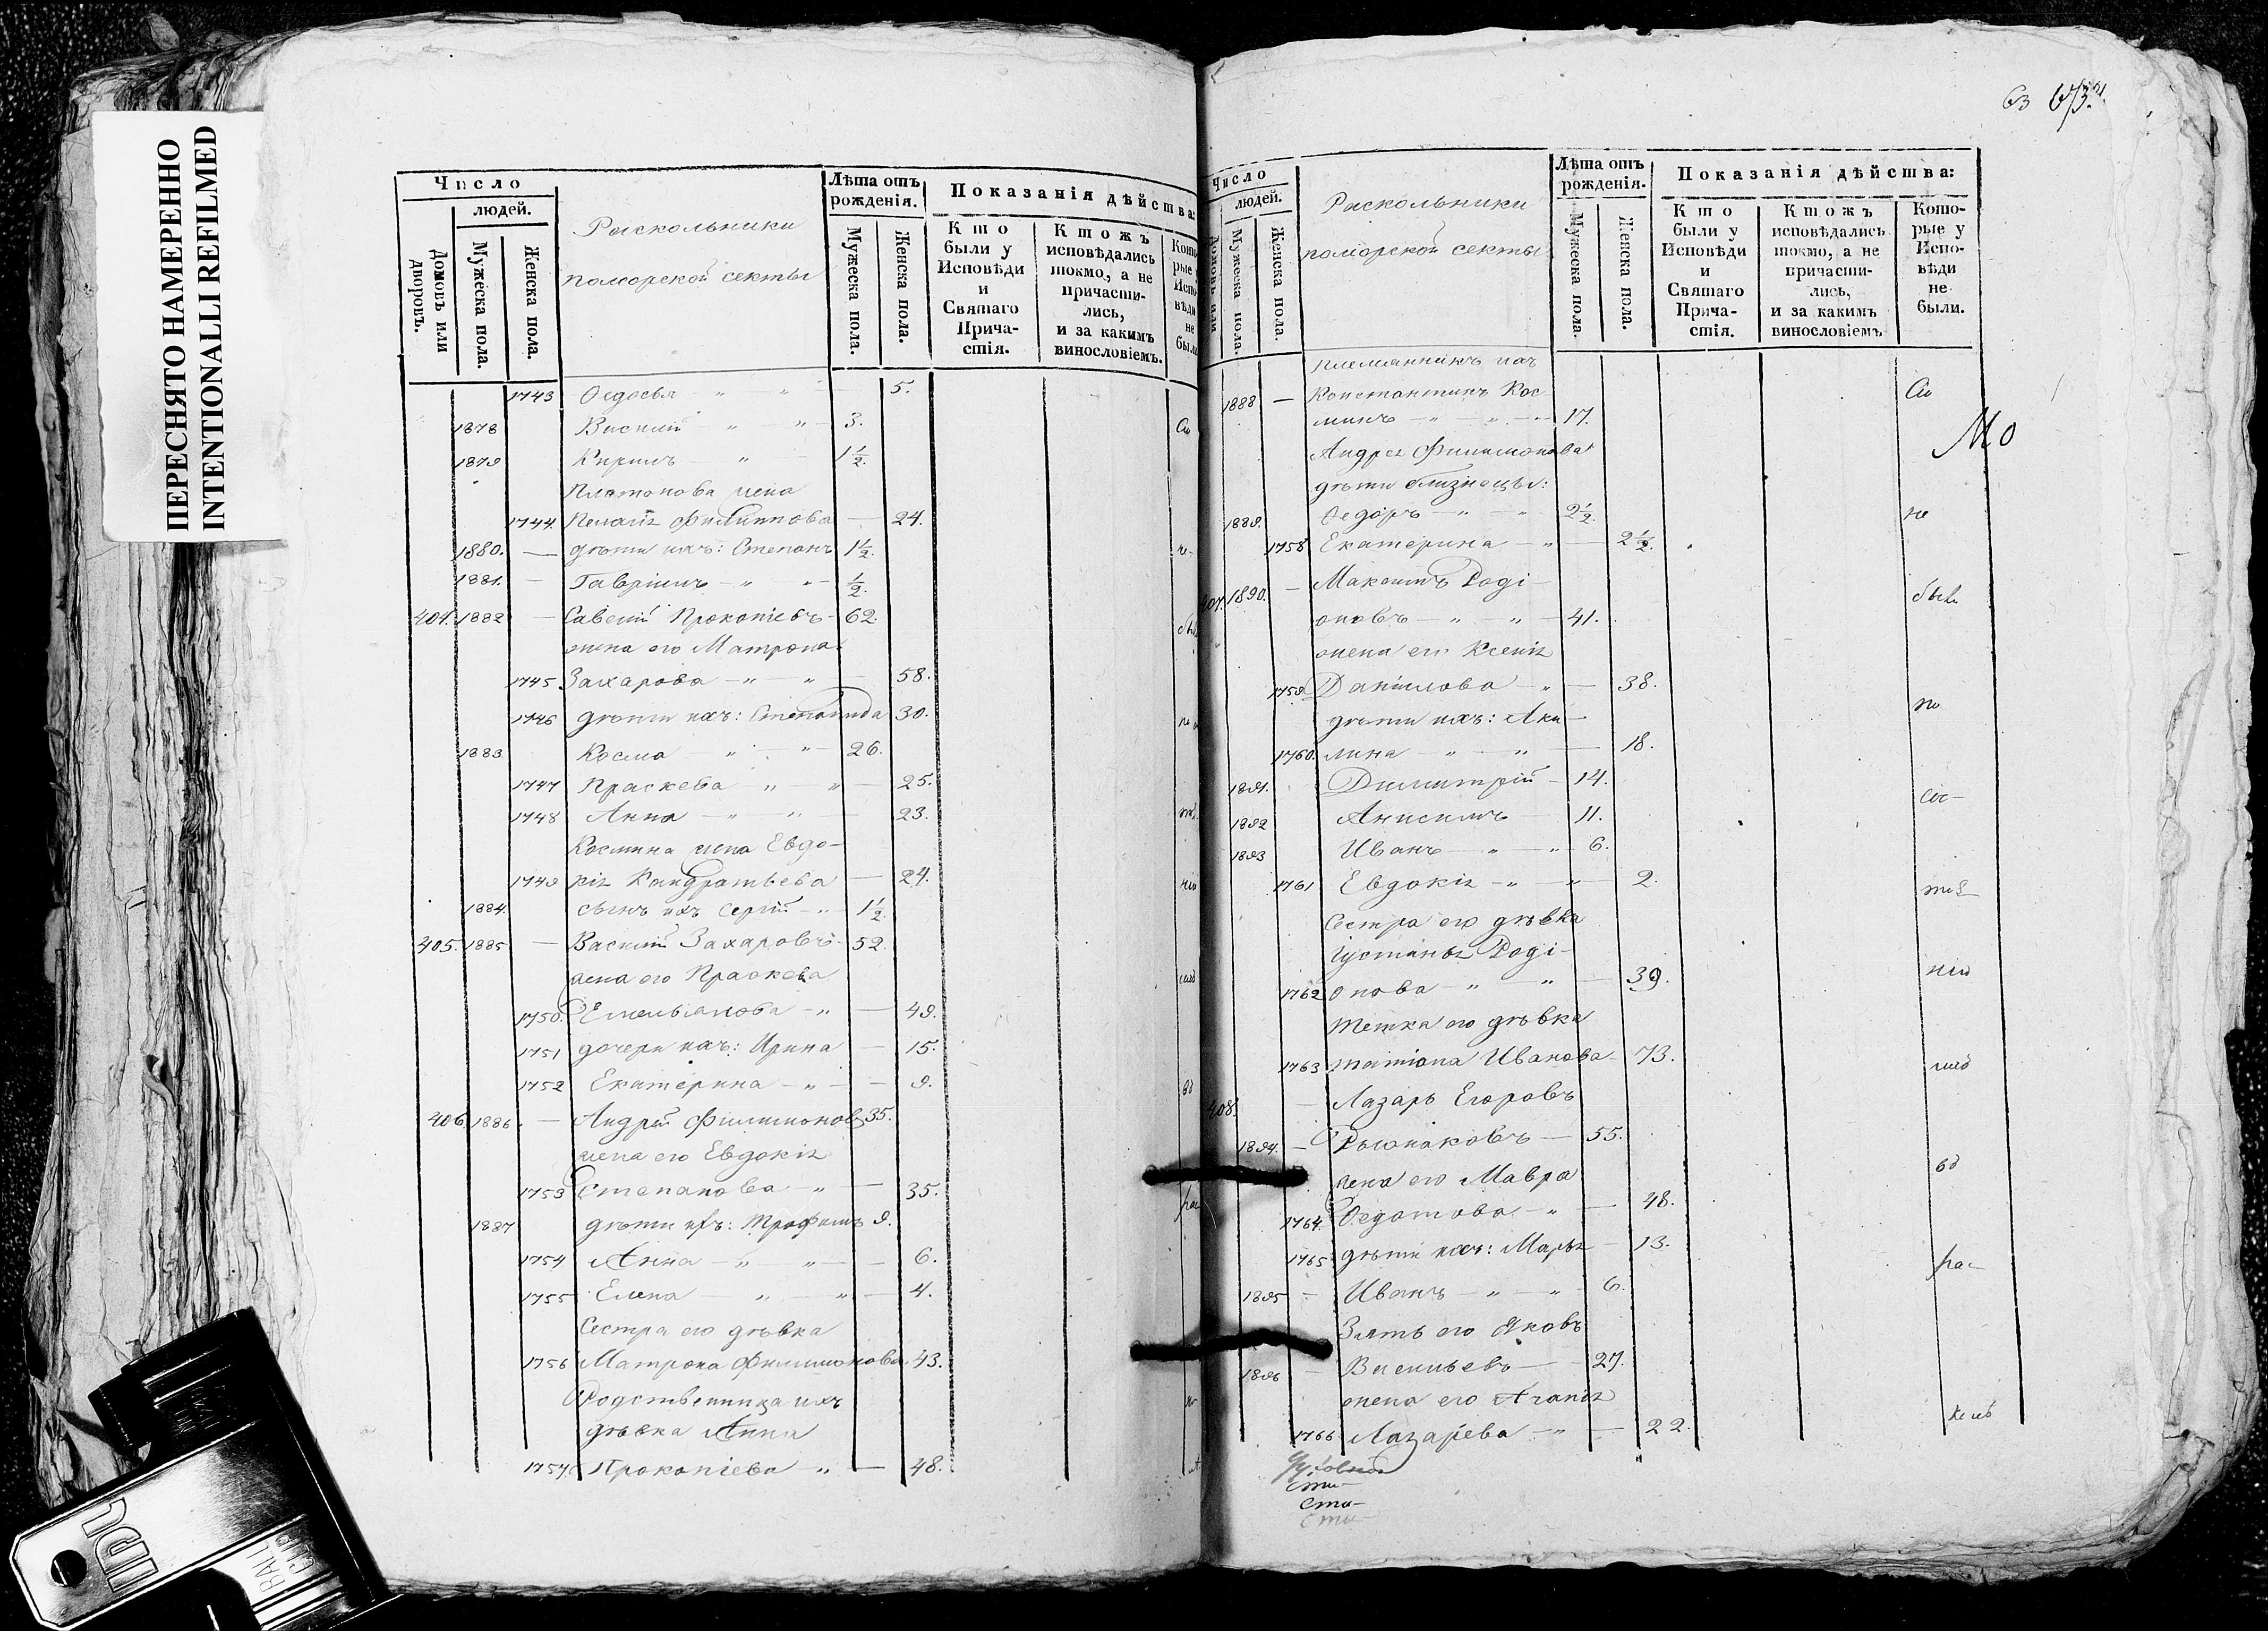 ПЕРЕСНЯТО НАМЕРЕННО
INTENTIONALLI REFILMED
Число
людей.
Домовъ или дворовъ.
Мужеска пола.
Женска пола.
Раскольники
поморской секты
Лѣта отъ рожденія.
Мужеска пола.
Женска пола.
Показанія дѣйства:
Кто были у Исповѣди и Святаго Причастія.
Ктожъ исповѣдались токмо, а не причастились, и за какимъ винословіемъ.
1743 Ѳедосья — " — " — 5.
1878 Василій — " — " — 3.
1879 Кирилъ — " — 1½.
Платонова жена
1744 Пелагія Филиппова — 24.
1880. — дѣти ихъ: Степанъ 1½.
1881. — Гавріилъ — " — " — ½.
404. 1882 — Савелій Прокопіевъ — 62.
жена его Матрона
1745 Захарова — " — " — 58.
1746 дѣти ихъ: Степанида 30.
1883 Косма — " — " — 26.
1747 Праскева — " — " — 25.
1748 Анна — " — " — 23.
Космина жена Евдо-
1749 кія Кандратьева — 24.
1884. сынъ ихъ Сергій — " 1½.
405. 1885 — Василій Захаровъ — 52.
жена его Праскева
1750. Емельянова — " — 49.
1751 дочери ихъ: Ирина — 15.
1752 Екатерина — " — 9.
406. 1886. — Андрей Филимоновъ 35.
жена его Евдокія
1753 Степанова — " — 35.
1887 дѣти ихъ: Трофимъ 9.
1754 Анна — " — " — 6.
1755 Елена — " — " — 4.
Сестра его дѣвка
1756 Матрона Филимонова 43.
Родственница ихъ
дѣвка Анна
1757. Прокопіева — " — 48.
63
Число
людей.
Мужеска пола.
Женска пола.
Раскольники
поморской секты
Лѣта отъ рожденія.
Мужеска пола.
Женска пола.
Показанія дѣйства:
Кто были у Исповѣди и Святаго Причастія.
Ктожъ исповѣдались токмо, а не причастились, и за какимъ винословіемъ
Которые у Исповѣди не были.
племянникъ ихъ
1888 — Константинъ Кос-
минъ — " — " — 17.
Андрея Филимонова
дѣти близнецы:
1889. Ѳедоръ — " — " 2½. не
1758 Екатерина — " — 2½.
407. 1890. — Максимъ Роді-
оновъ — " — " — 41. были
жена его Ксенія
1759 Данилова — " — 38.
дѣти ихъ: Аки- по
1760. лина — " — " — 18.
1891. Димитрій — 14.
1892 Анисимъ — 11.
1893 Иванъ — " — " 6.
1761 Евдокія — " — " 2.
Сестра его дѣвка
Іустинья Роді-
1762 онова — " — " — 39.
Тетка его дѣвка
1763 Татіана Иванова — 73.
408. — Лазарь Егоровъ
1894. — 55.
жена его Мавра
1764. Ѳедотова — " — 48.
1765 дѣти ихъ: Марья — 13.
1895 — Иванъ — " — " — 6. рас-
Зять его Яковъ
1896 — Васильевъ — 27.
жена его Агапія
1766 Лазарева — " — 22.